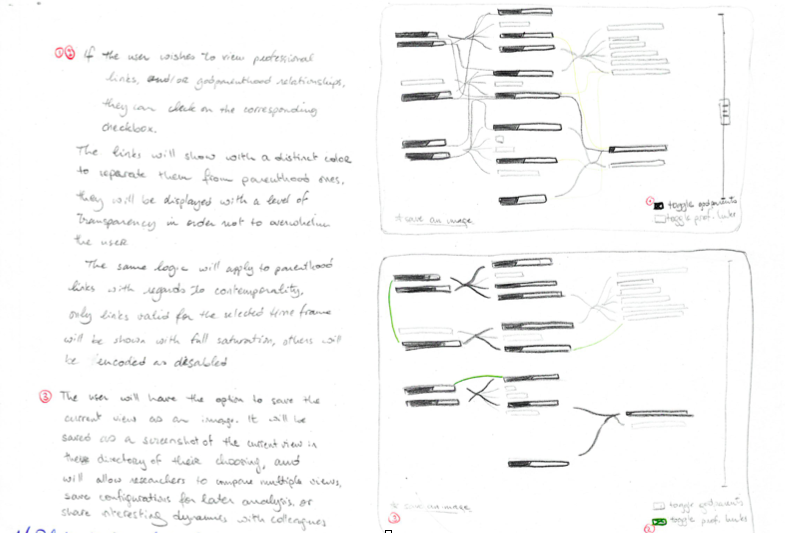 ①② If the user wishes to view professional
links, and/or godparenthood relationships,
they can check on the corresponding
checkbox.
The links will show with a distinct color
to separate them from parenthood ones,
they will be displayed with a level of
transparency in order not to overwhelm
the user
The same logic will apply to parenthood
links with regards to contemporality,
only links valid for the selected time frame
will be shown with full saturation, others will
be encoded as disabled
③ The user will have the option to save the
current view as an image. It will be
saved as a screenshot of the current view in
the directory of their choosing, and
will allow researchers to compare multiple views,
save configurations for later analysis, or
share interesting dynamics with colleagues
save an image
① toggle godparents
toggle prof. links
save an image
③
toggle godparents
② toggle prof. links